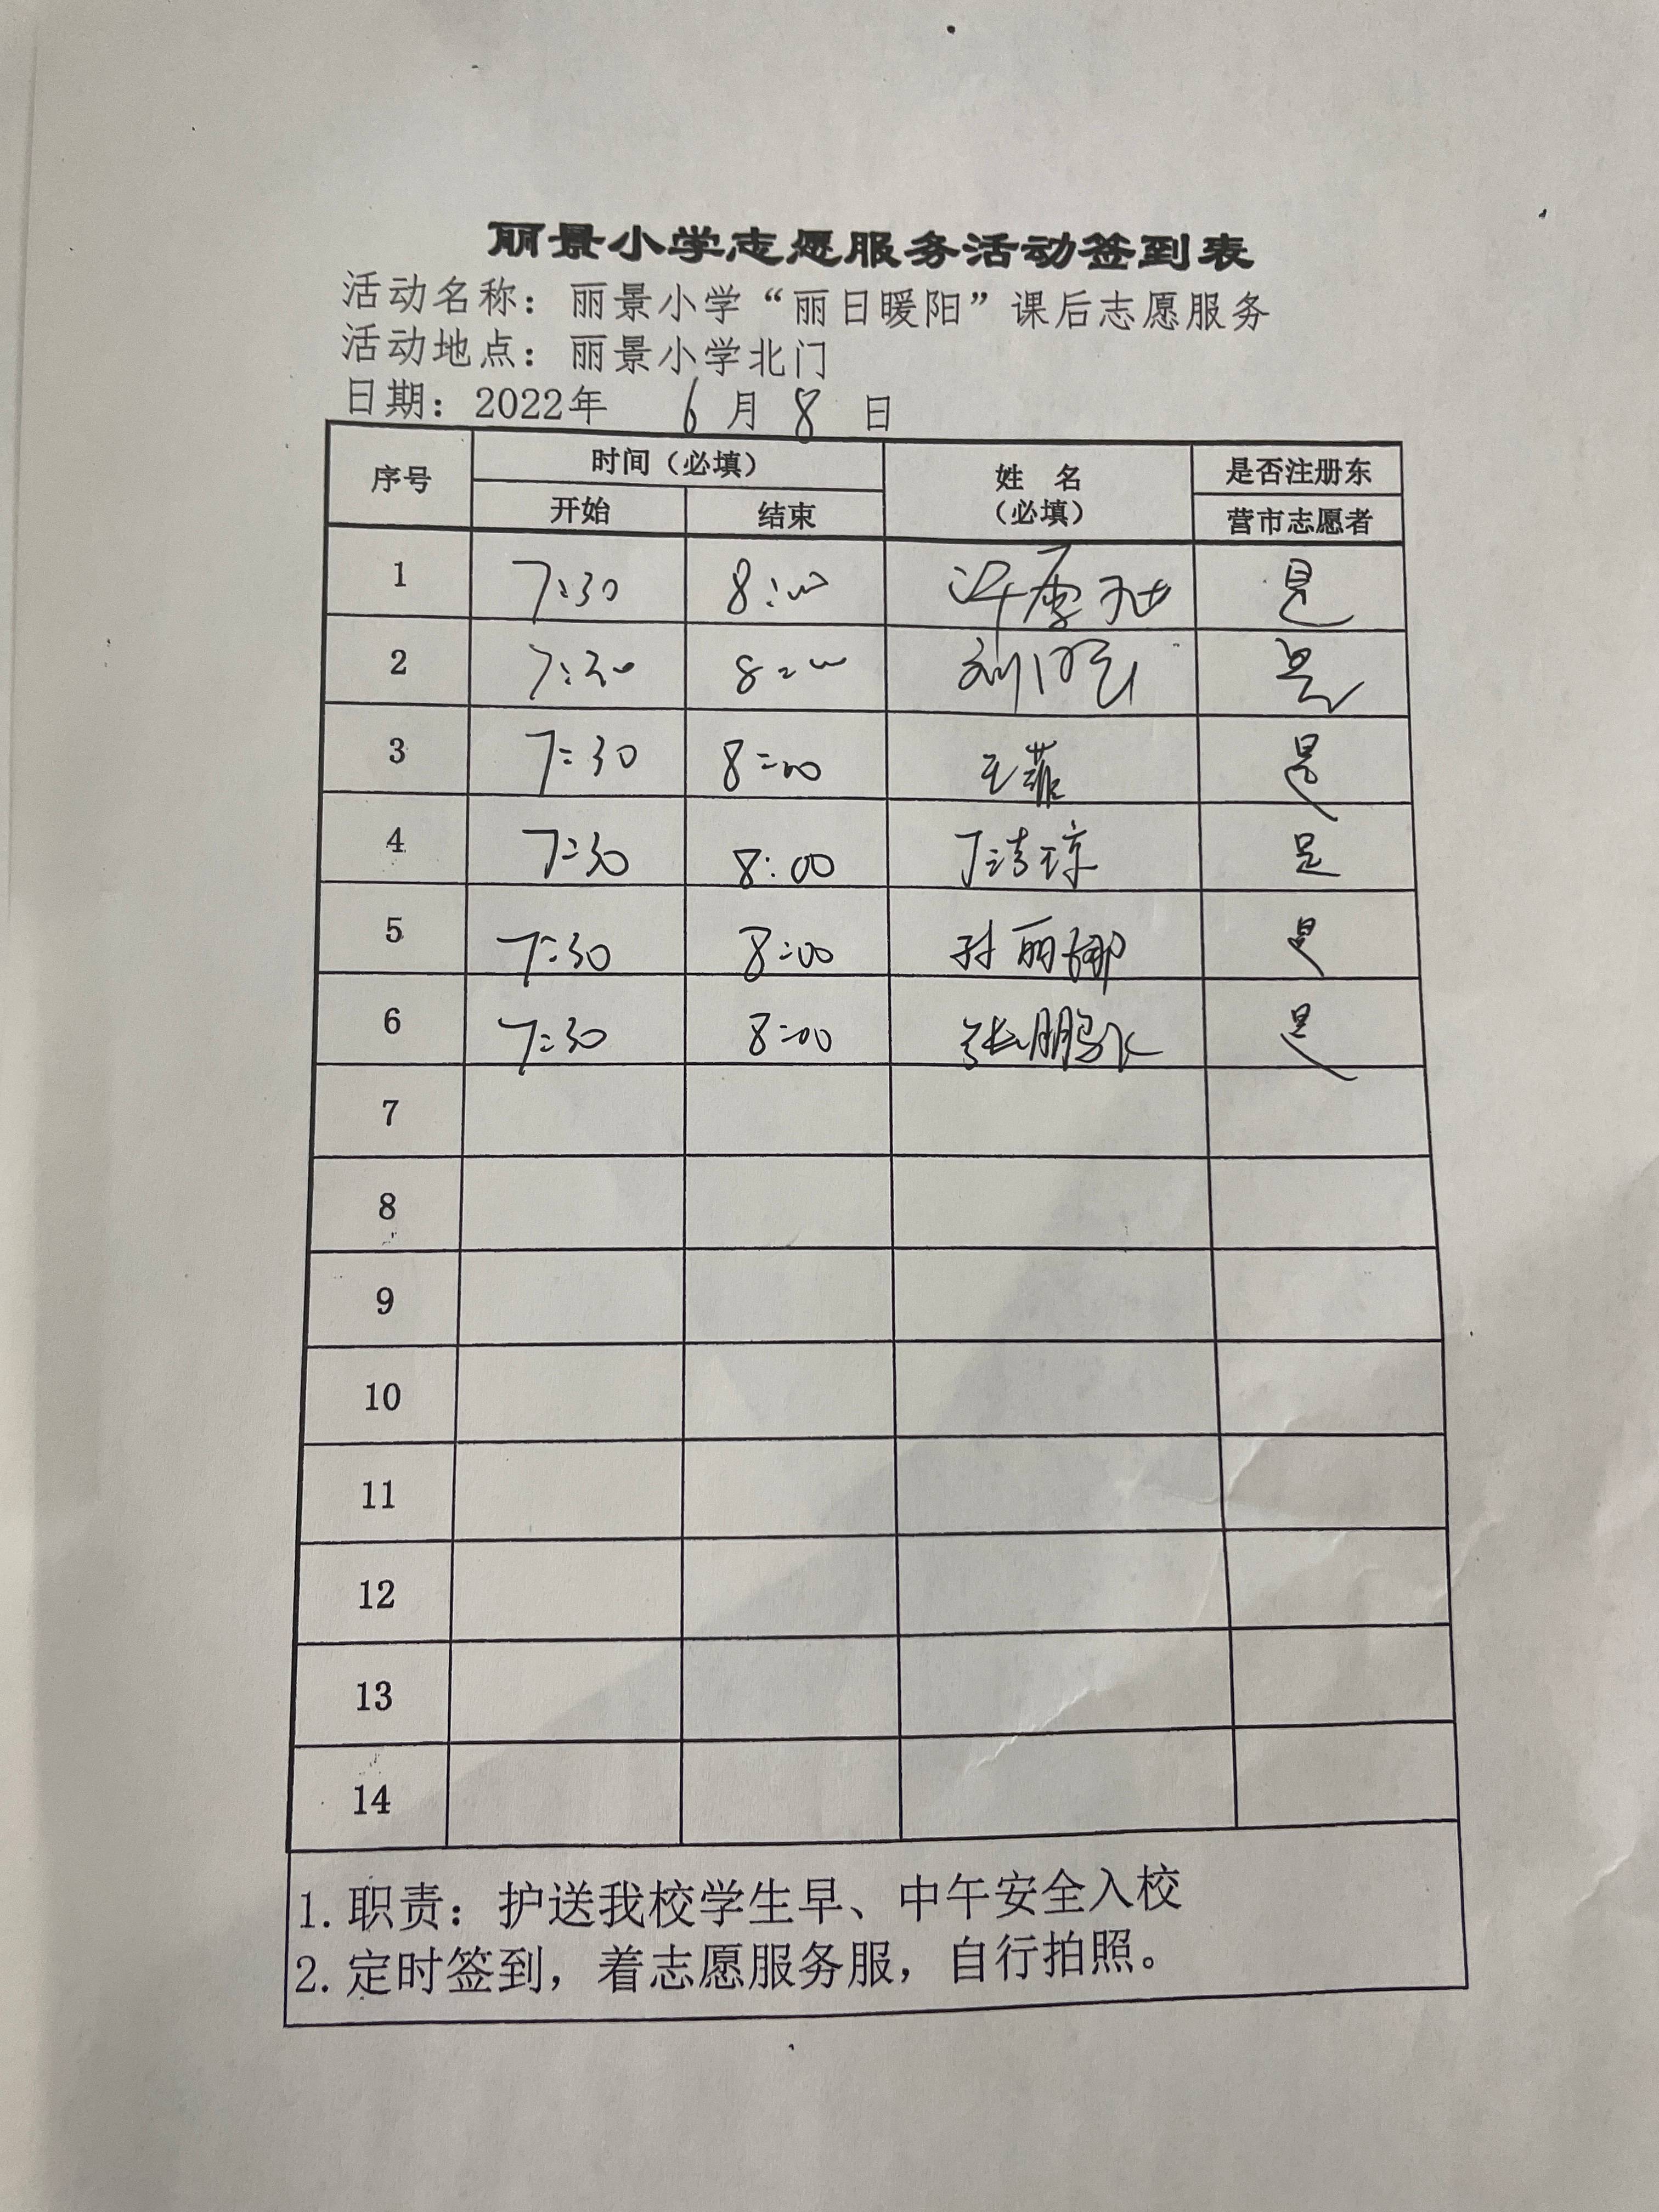 丽景小学志愿服务活动签到表
活动名称：丽景小学“丽日暖阳”课后志愿服务
活动地点：丽景小学北门
日期：2022年 6月8日
序号 时间（必填） 姓 名（必填） 是否注册东营市志愿者
开始 结束
1 7:30 8:00 是
2 7:30 8:00 是
3 7:30 8:00 王 是
4 7:30 8:00 丁清琼 是
5 7:30 8:00 孙丽娜 是
6 7:30 8:00 张鹏飞 是
7
8
9
10
11
12
13
14
1.职责：护送我校学生早、中午安全入校
2.定时签到，着志愿服务服，自行拍照。